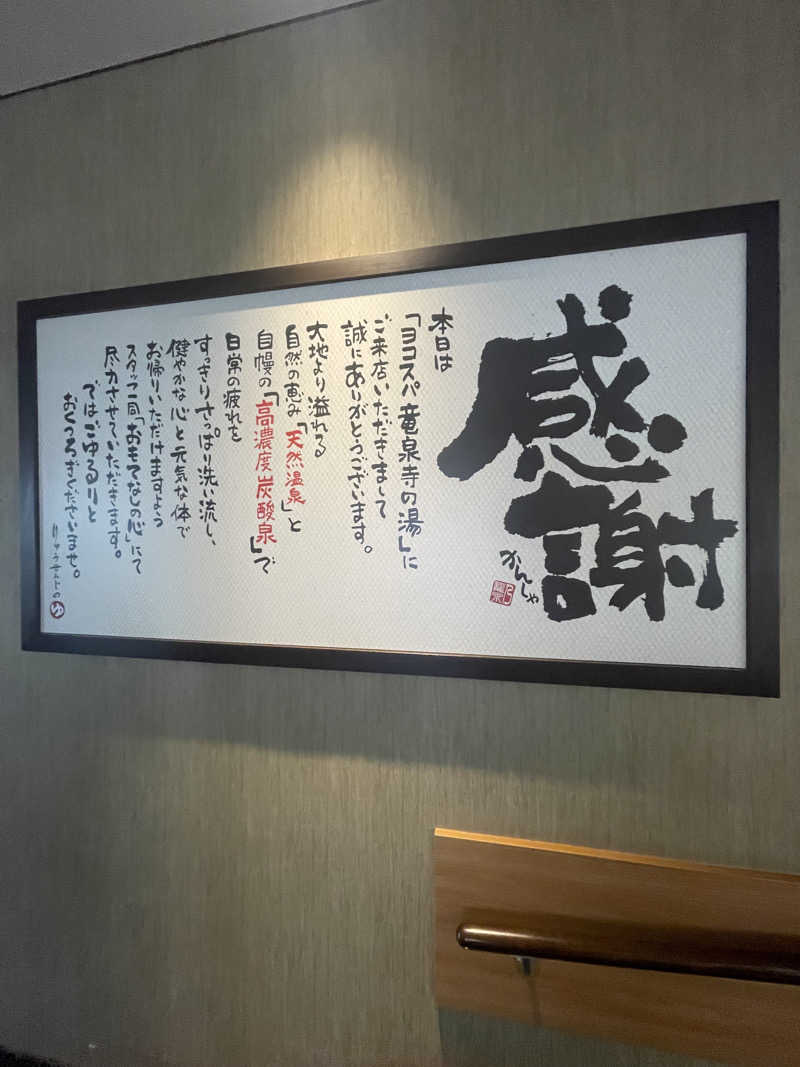 感謝
かんしゃ
本日は
「ヨコスパ竜泉寺の湯」に
ご来店いただきまして
誠にありがとうございます。
大地より溢れる
自然の恵み「天然温泉」と
自慢の「高濃度炭酸泉」で
日常の疲れを
すっきりさっぱり洗い流し、
健やかな心と元気な体で
お帰りいただけますよう
スタッフ一同「おもてなしの心」にて
尽力させていただきます。
ではごゆるりと
おくつろぎくださいませ。
りゅうせんじの ゆ